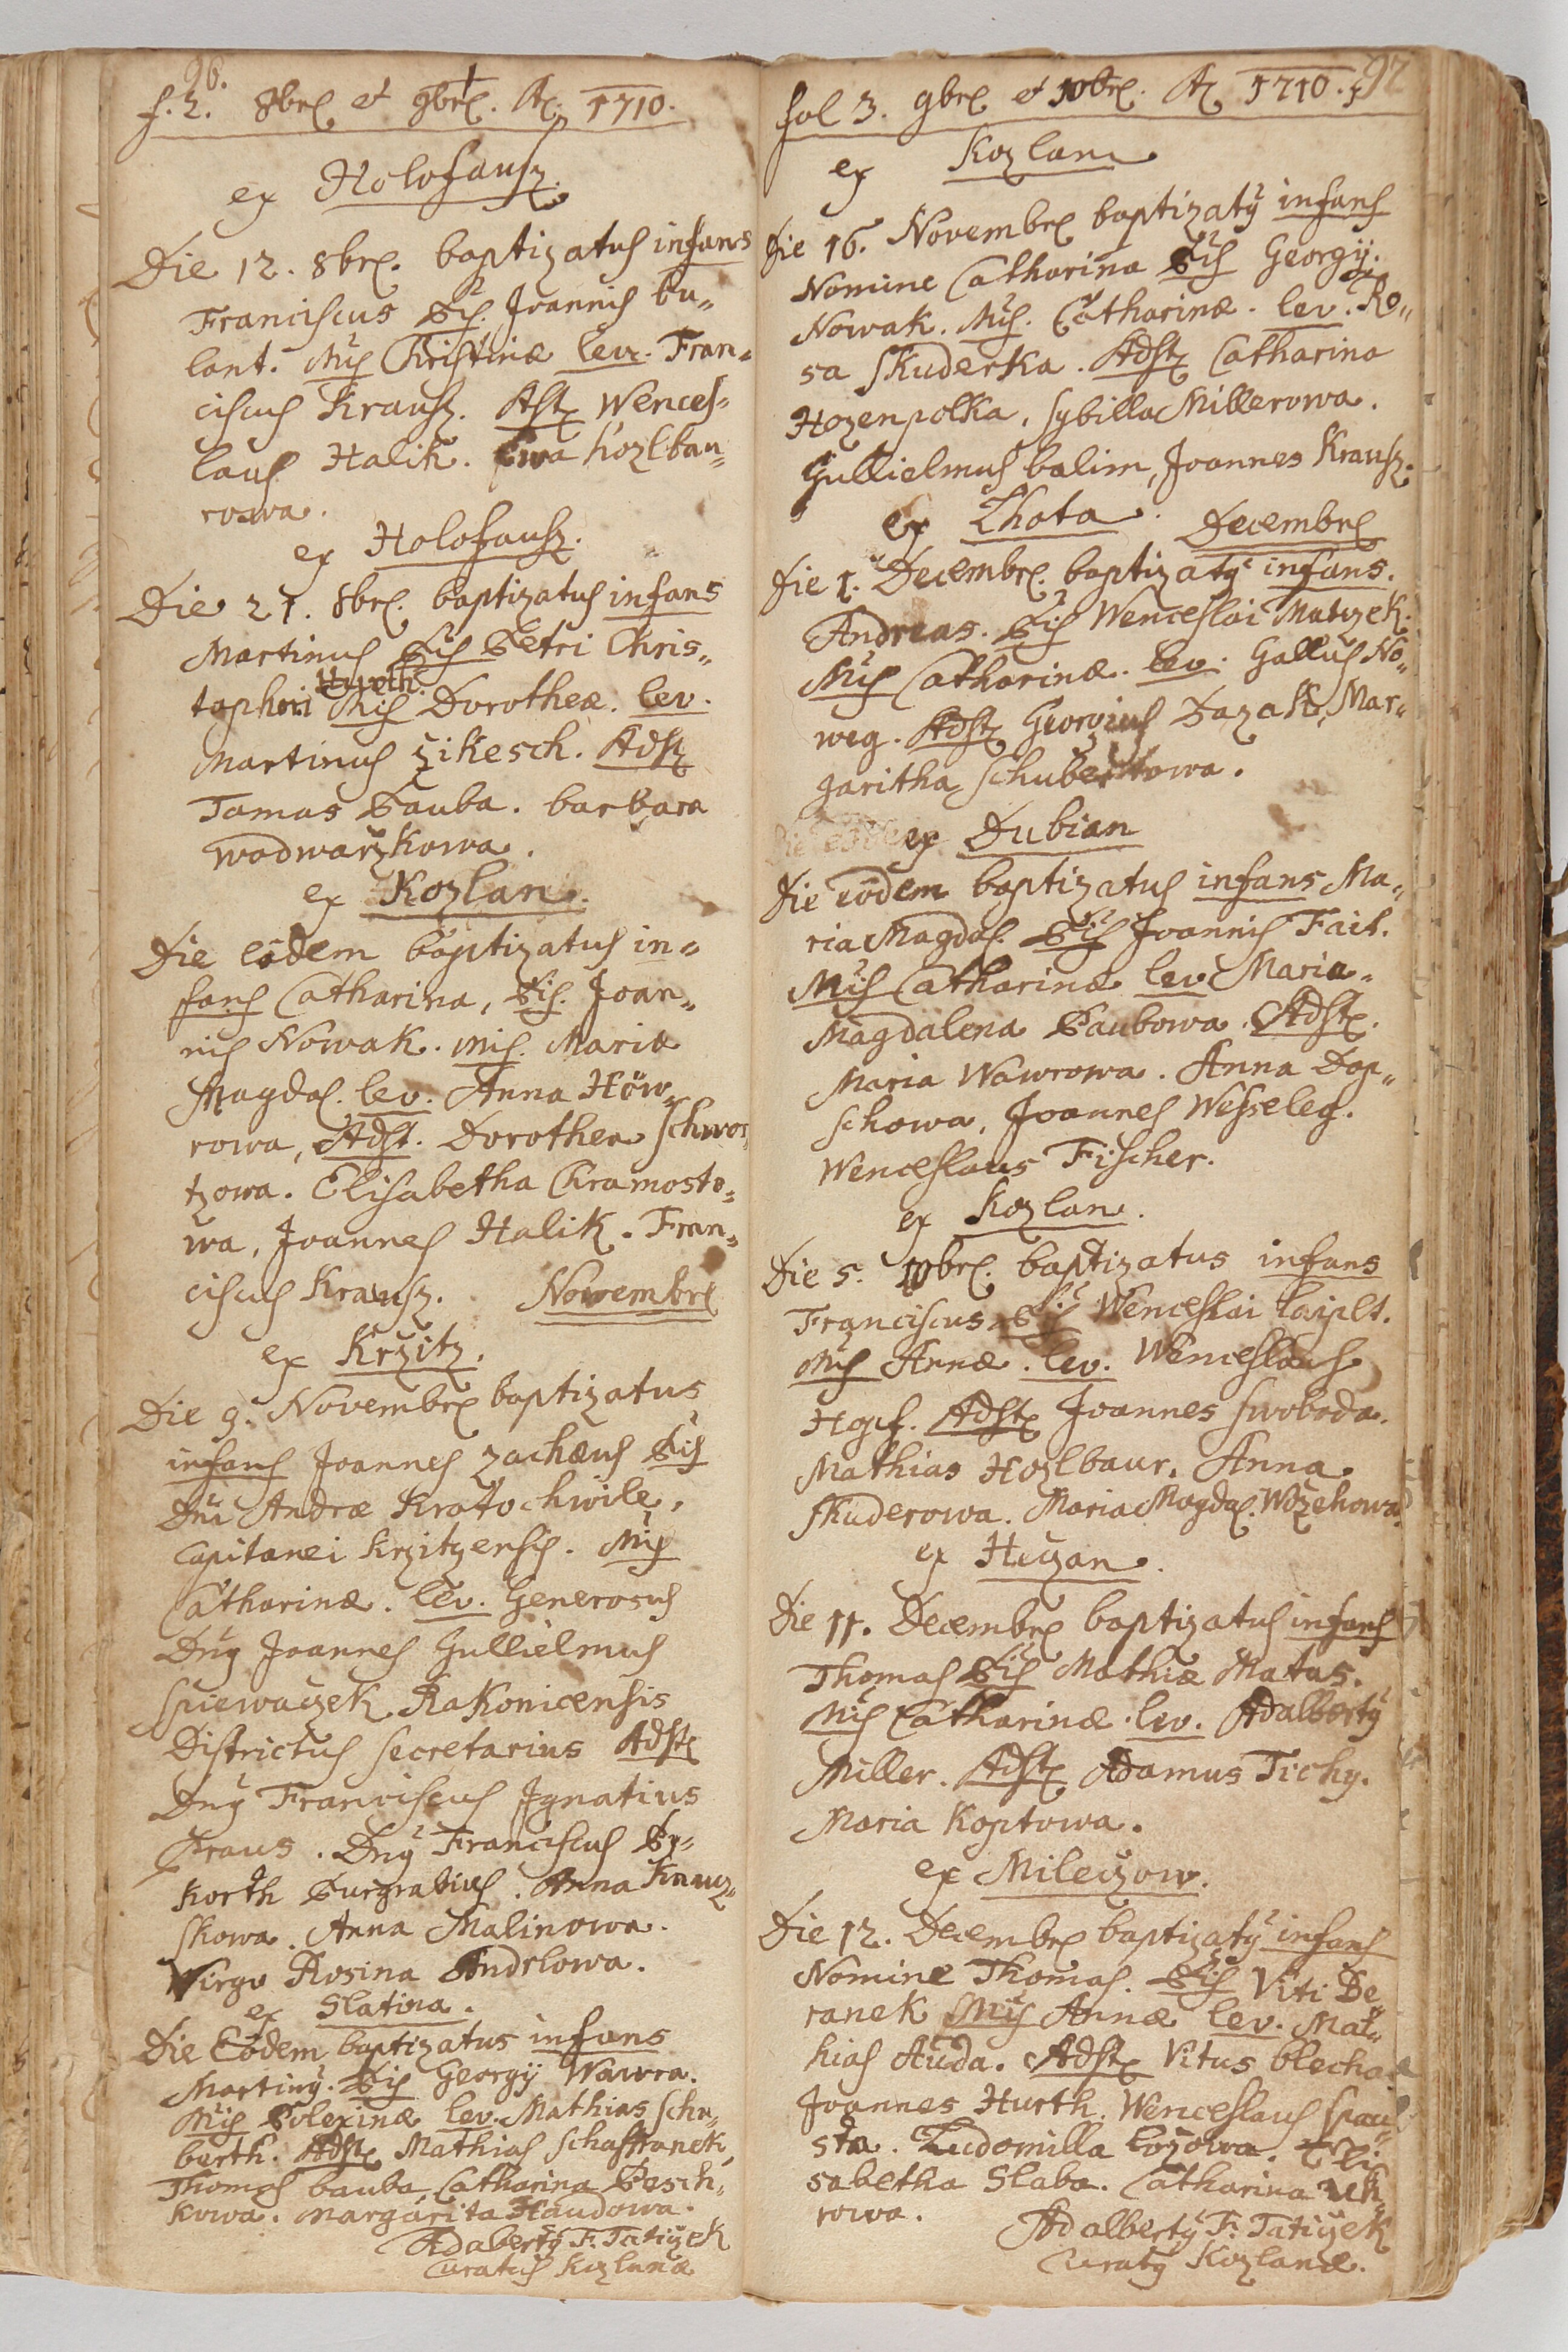 96.
f. 2. 8bris et 9bris. Ao. 1710.
ex Holofausz.
Die 12. 8bris. baptizatus infans
Franciscus Pris. Joannis bu„
lant. Mris Christinæ lev. Fran„
ciscus Krausz. Astes Wences„
laus Halik. Ewa hozlbau„
rowa.
ex Holofausz.
Die 21. 8bris. baptizatus infans
Martinus Pris Petri Chris„
Hureth.
tophori Mris Dorotheæ. lev.
Martinus zikesch. Adstes
Tomas Bauba. barbara
wodwarzkowa.
ex Kozlan.
Die eodem baptizatus in„
fans Catharina, Pris. Joan„
nis Nowak. Mris. Mariæ
Magdas. lev. Anna Haw„
rowa, Adst. Dorothea Schwor„
tzowa. Elisabetha Chramosto„
wa, Joannes Halik. Fran„
ciscus Krausz. Novembris
ex Krzitz.
Die 9. Novembris baptizatus
infans Joannes zachæus Pris
Dni Andræ Kratochwile,
Capitanei Krzitzensis. Mris
Catharinæ. lev. Generosus
Dnus Joannes Gullielmus
Spiewaczek Rakonicensis
Districtus Secretarius Adstes
Dnus Franciscus Ignatius
Praus. Dnus Franciscus
korth Purgrabius. Anna Knauz„
skowa. Anna Malinowa.
Virgo Rosina Andrlowa.
ex Slatina.
Die Eodem baptizatus infans
Martinus. Pris Georgij Wawra.
Mris Polexinæ lev. Mathias Schu„
berth. Adstes Mathias Schaffranek,
Thomas bauba, Catharina Pesch„
kowa. Margarita Haudowa.
Adalbertus F. Taticzek
Curatus Kozlanæ
97
fol 3. 9bris et 10bris. Ao 1710.
ex Kozlan
Die 16. Novembris baptizatus infans
Nomine Catharina Pris Georgij.
Nowak. Mris. Catharinæ. lev. Ro„
sa Skuderka. Adstes Catharina
Hozenpolka, Sybilla Millerowa.
Gullielmus balim, Joannes Krausz.
ex Lhota. Decembris
Die 1. Decembris. baptizatus infans.
Andreas. Pris Wenceslai Matczek.
Mris Catharinæ. lev. Gallus No„
weg. Adstes Georgius Pazak, Mar„
garitha Schubertowa.
ex Dubian
Die eodem baptizatus infans Ma„
ria Magdas. Pris Joannis Fait.
Mris Catharinæ lev Maria„
Magdalena Baubowa. Adstes.
Maria Wawrowa. Anna Dop„
schowa, Joannes Wesseleg.
Wenceslaus Fischer.
ex Kozlan.
Die 5. 10bris. baptizatus infans
Franciscus Pris Wenceslai
Mris Annæ. lev. Wenceslaus
Adstes Joannes Swoboda.
Mathias Hozlbaur. Anna
Skuderowa. Maria Magdas. Wozehowa.
ex Hiczan.
Die 11. Decembris baptizatus infans
Thomas Pris Mathiæ Matas.
Mris Catharinæ. lev. Adalbertus
Miller. Adstes Adamus Tichy.
Maria Koptowa.
ex Mileczow.
Die 12. Decembris baptizatus infans
Nomine Thomas. Pris Viti Be„
ranek Mris Annæ lev. Mat„
hias Auda. Adstes Vitus blecha.
Joannes Hurth. Wenceslaus Spau„
sta. Ludomilla Eli„
sabetha Slaba. Catharina
rowa.
Adalbertus F. Taticzek
Curatus Kozlanæ.